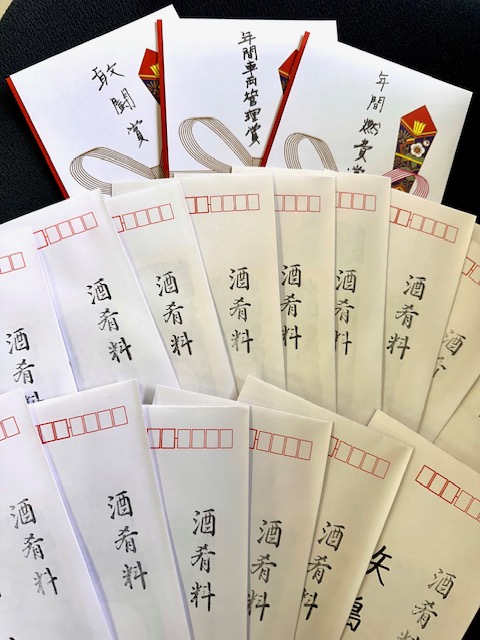 敢闘賞
年間車両管理賞
年間燃費賞
酒肴料
酒肴料
酒肴料
酒肴料
酒肴料
酒肴料
酒肴料
酒肴
酒肴料
酒肴料
酒肴料
酒肴料
酒肴料
酒肴料
矢